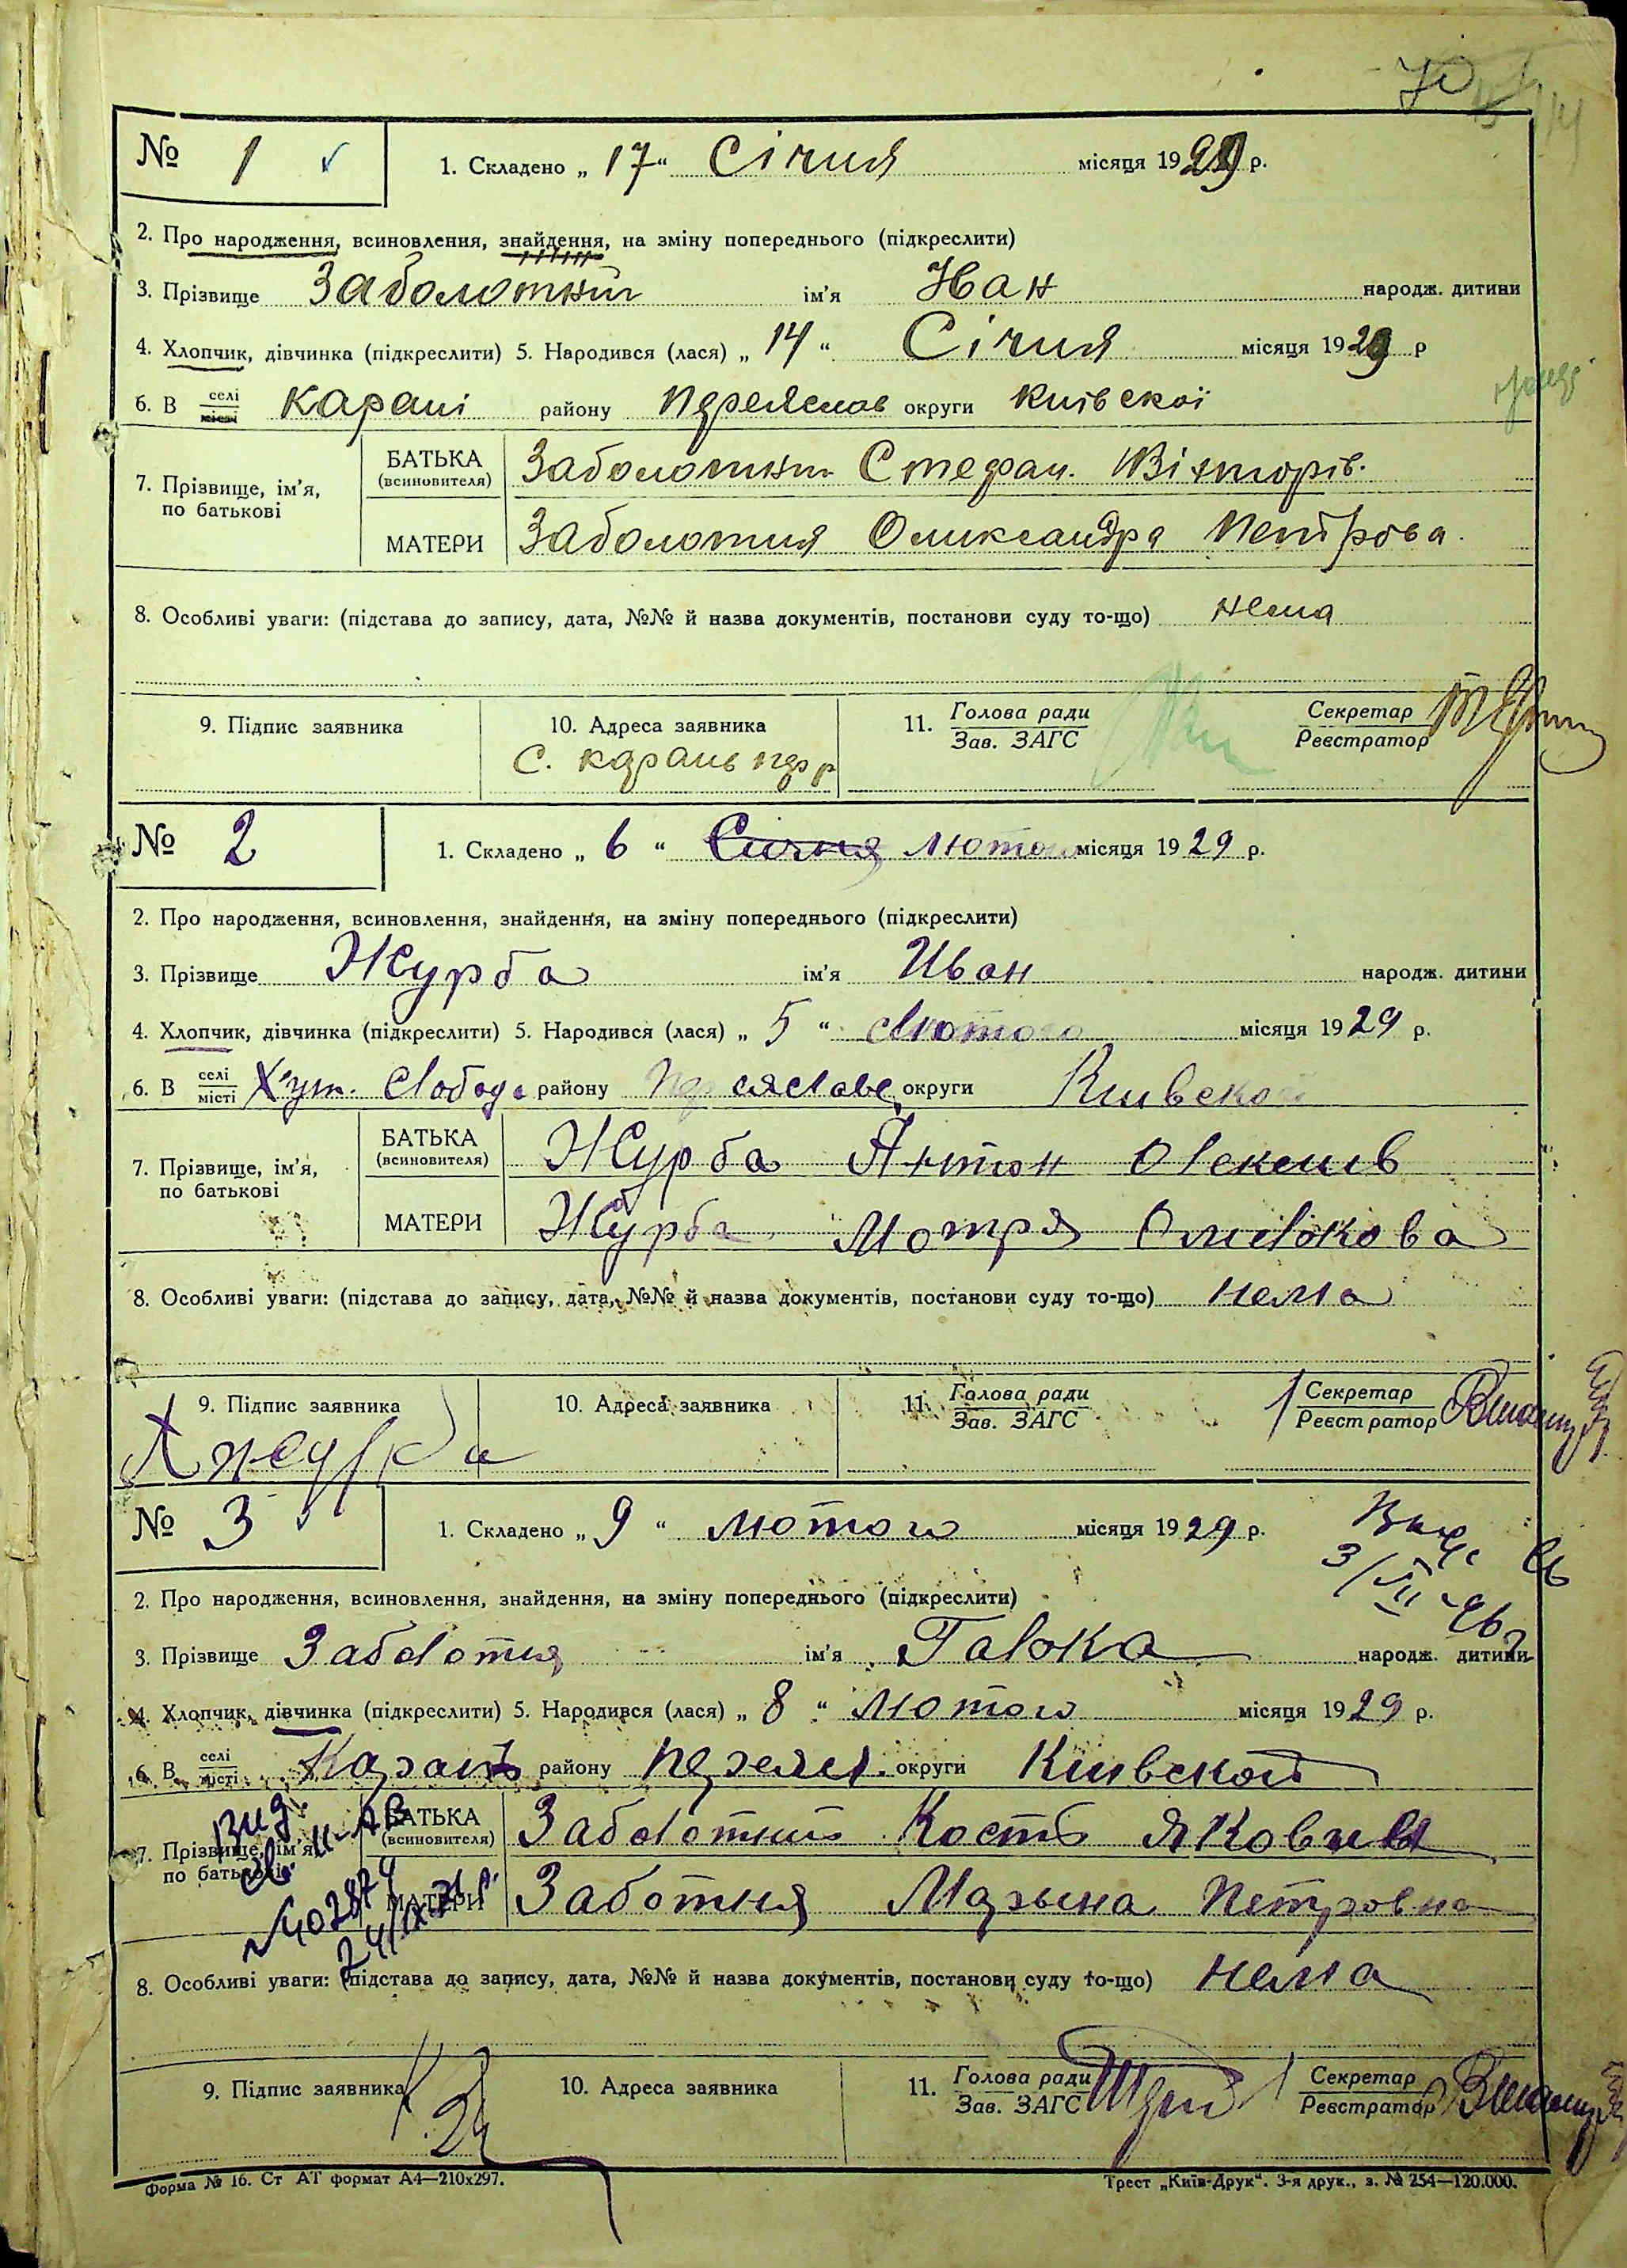 70
№ 1 1. Складено „ 17 “ Січня місяця 1929 р.
2. Про народження, всиновлення, знайдення, на зміну попереднього (підкреслити)
3. Прізвище Заболотний ім'я народж. дитини
4. Хлопчик, дівчинка (підкреслити) 5. Народився (лася) „ 14 “ Січня місяця 1929 р
6. В селі місті Карані району Переяслав округи Київскої
7. Прізвище, ім'я, по батькові
БАТЬКА (всиновителя) Заболотний Стефан. Вікторів.
МАТЕРИ Заболотня Олександра Петрова.
8. Особливі уваги: (підстава до запису, дата, №№ й назва документів, постанови суду то-що) нема
9. Підпис заявника 10. Адреса заявника 11. Голова ради Зав. ЗАГС Секретар Реєстратор
С. Карань пер р
№ 2 1. Складено „ 6 “ Січня Лютого місяця 1929 р.
2. Про народження, всиновлення, знайдення, на зміну попереднього (підкреслити)
3. Прізвище Журба ім'я Иван народж. дитини
4. Хлопчик, дівчинка (підкреслити) 5. Народився (лася) „ 5 “ Лютого місяця 1929 р.
6. В селі місті Хут. Слобода району округи Киівской
7. Прізвище, ім'я, по батькові
БАТЬКА (всиновителя) Журба Антон Олексіїв
МАТЕРИ Журба Мотря
8. Особливі уваги: (підстава до запису, дата, №№ й назва документів, постанови суду то-що) нема
9. Підпис заявника 10. Адреса заявника 11. Голова ради Зав. ЗАГС Секретар Реєстратор
А Журба
№ 3 1. Складено „ 9 “ лютого місяця 1929 р.
2. Про народження, всиновлення, знайдення, на зміну попереднього (підкреслити)
3. Прізвище Заблотня ім'я Галька народж. дитини
4. Хлопчик, дівчинка (підкреслити) 5. Народився (лася) „ 8 “ лютого місяця 1929 р.
6. В селі місті Карань району Переясл. округи Киівской
7. Прізвище, ім'я, по батькові
БАТЬКА (всиновителя) Заблотний Кость Яковив
МАТЕРИ Заботня Марына Петровна
8. Особливі уваги: (підстава до запису, дата, №№ й назва документів, постанови суду то-що) нема
9. Підпис заявника 10. Адреса заявника 11. Голова ради Зав. ЗАГС Секретар Реєстратор
Форма № 16. Ст АТ формат А4—210х297. Трест „Київ-Друк“. 3-я друк., з. № 254—120.000.